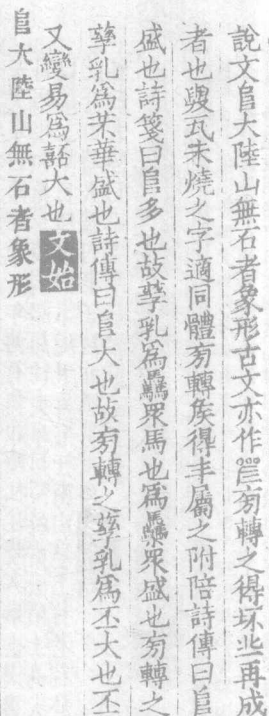 說文𨸏大陸山無石者象形古文亦作𨺅㫄轉之得坏丘再成
者也與瓦未燒之字適同體㫄轉矦得丰屬之附陪詩傳曰𨸏
盛也詩箋曰𨸏多也故孳乳爲驫眾馬也爲眾盛也㫄轉之
孳乳爲芣華盛也詩傳曰𨸏大也故㫄轉之孳乳爲丕大也丕
又變易爲嚭大也文始
𨸏大陸山無石者象形